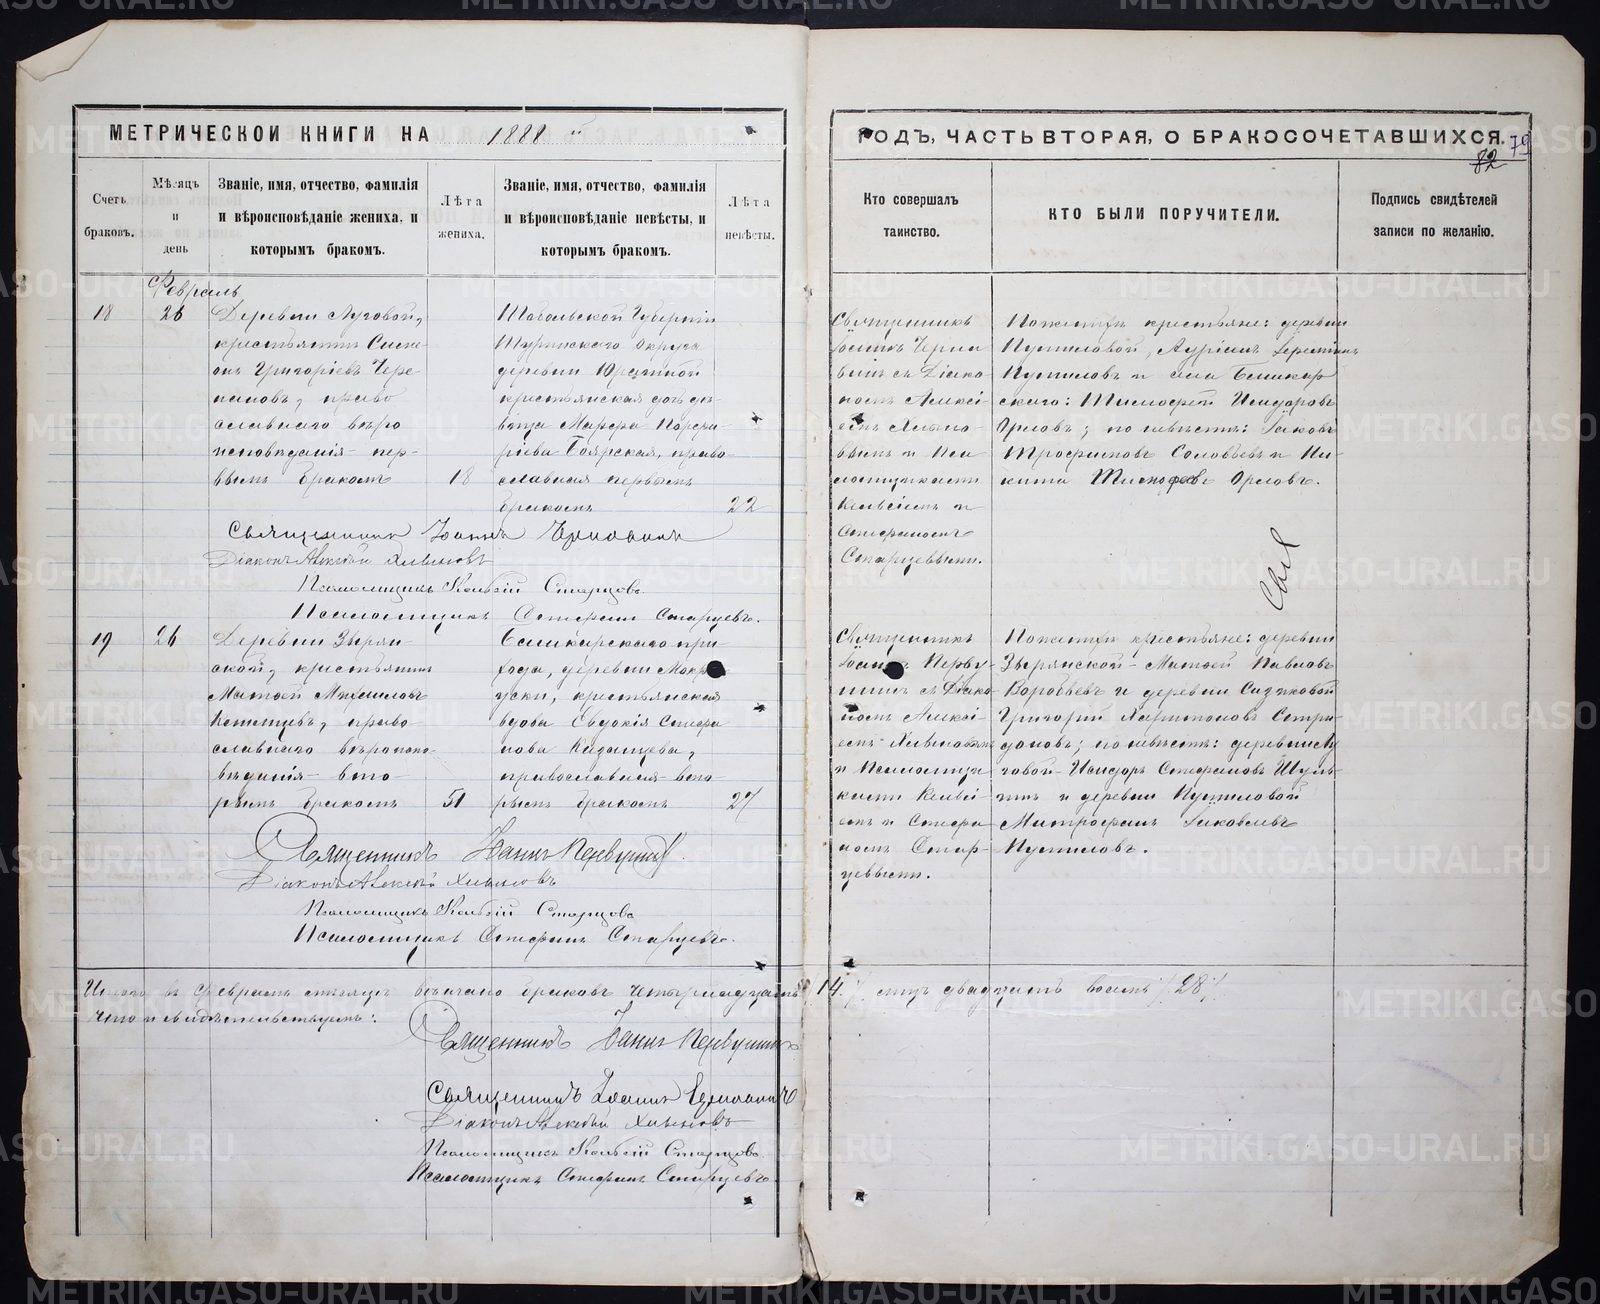 МЕТРИЧЕСКОЙ КНИГИ НА 1888 й
ГОДЪ, ЧАСТЬ ВТОРАЯ, О БРАКОСОЧЕТАВШИХСЯ.
82 79
Счетъ браковъ.
Мѣсяцъ и день
Званіе, имя, отчество, фамилія
и вѣроисповѣданіе жениха, и
которымъ бракомъ.
Лѣта
жениха.
Званіе, имя, отчество, фамилія
и вѣроисповѣданіе невѣсты, и
которымъ бракомъ.
Лѣта
невѣсты.
Кто совершалъ
таинство.
КТО БЫЛИ ПОРУЧИТЕЛИ.
Подпись свидѣтелей
записи по желанію.
Февраль
18
26
Деревни Луговой,
крестьянинъ Симе-
онъ Григоріевъ Чере-
пановъ, право
славнаго вѣро
исповѣданія пер-
вымъ бракомъ
18
Тобольской Губерніи
Туринскаго Округа
деревни
крестьянская дочь дѣ-
вица Марфа Порфи-
ріева Боярская, право-
славная первымъ
бракомъ
22
Священникъ
Іоаннъ
съ Діако-
номъ Алексі-
емъ Хлыно-
вымъ и Пса
ломщиками
и
Стефаномъ
Старцевыми.
крестьяне: деревни
Пупиловой,
Пупиловъ и села Башкар
скаго: Тимофей Исидоровъ
Орловъ; по невѣстѣ: Іаковъ
Трофимовъ Соловьевъ и Ни-
кита Тимофеевъ Орловъ.
Священникъ Іоаннъ
Діаконъ Алексѣй Хлыновъ
Псаломщикъ Старцовъ.
Псаломщикъ Стефанъ Старцевъ.
19
26
Деревни Зырян-
ской, крестьянинъ
Матвей Михаиловъ
право-
славнаго вѣроиспо-
вѣданія вто-
рымъ бракомъ
51
Башкарскаго при-
хода, деревни Мокро
уски, крестьянская
вдова Евдокія Стефа
нова Казанцева,
православная вто-
рымъ бракомъ
27
Священникъ
Іоаннъ Перву-
шинъ съ Діако-
номъ Алексі-
емъ Хлыновымъ
и Псаломщи
ками
и Стефа
номъ Стар-
цевыми.
крестьяне: деревни
Зырянской Матвей Павловъ
Воробьевъ и деревни Сизиковой
Григорій Харитоновъ Спири-
доновъ; по невѣстѣ: деревни Лу
говой Исидоръ Стефановъ Шуль-
гинъ и деревни Пупиловой
Митрофанъ Іаковлевъ
Пупиловъ.
Священникъ Іоаннъ Первушинъ.
Діаконъ Алексѣй Хлыновъ
Псаломщикъ Старцовъ
Псаломщикъ Стефанъ Старцевъ.
Итого въ Февралѣ мѣсяцѣ вѣнчано браковъ четырнадцать /14/ лицъ двадцать восемь /28/
что и свидѣтельствуемъ:
Священникъ Іоаннъ Первушинъ
Священникъ Іоаннъ
Діаконъ Алексѣй Хлыновъ
Псаломщикъ Старцовъ.
Псаломщикъ Стефанъ Старцевъ.
METRIKI.GASO-URAL.RU